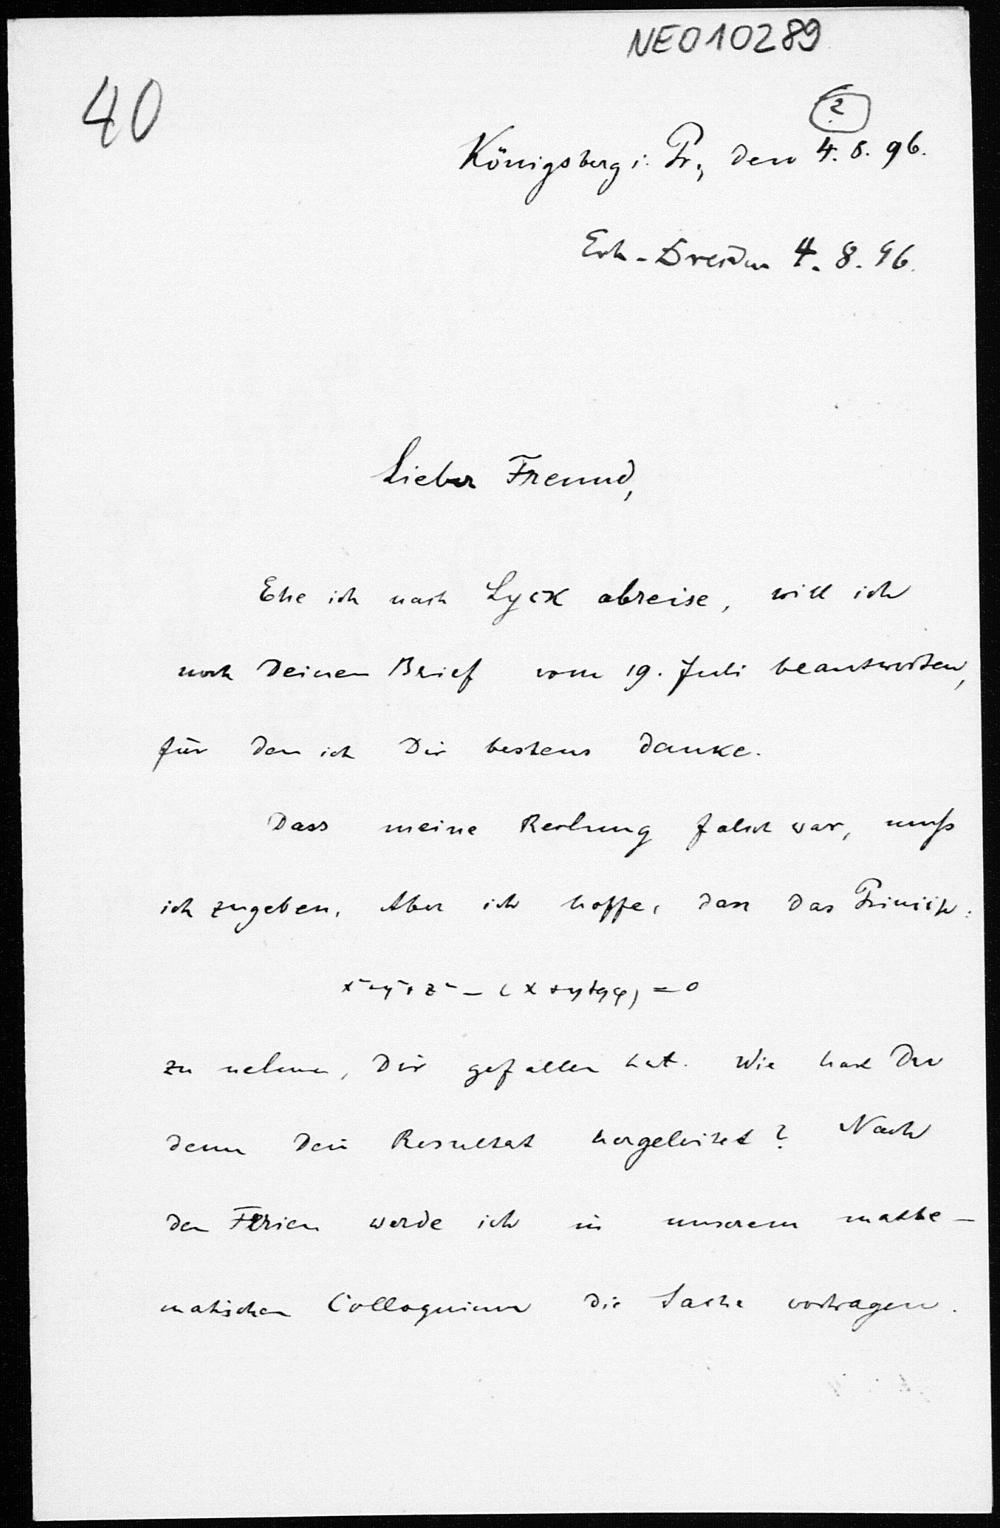 NE010289
40
2
Königsberg i. Pr., den 4. 8. 96.
Dresden 4. 8. 96.
Lieber Freund,
Ehe ich nach Lyck abreise, will ich
noch Deinen Brief vom 19. Juli beantworten,
für den ich Dir bestens danke.
Dass meine Rechnung falsch war, muß
ich zugeben. Aber ich hoffe, dass das
= 0
zu nehmen, Dir gefallen hat. Wie hast Du
denn Dein Resultat hergeleitet? Nach
den Ferien werde ich in unserem mathe-
matischen Colloquium die Sache vortragen.